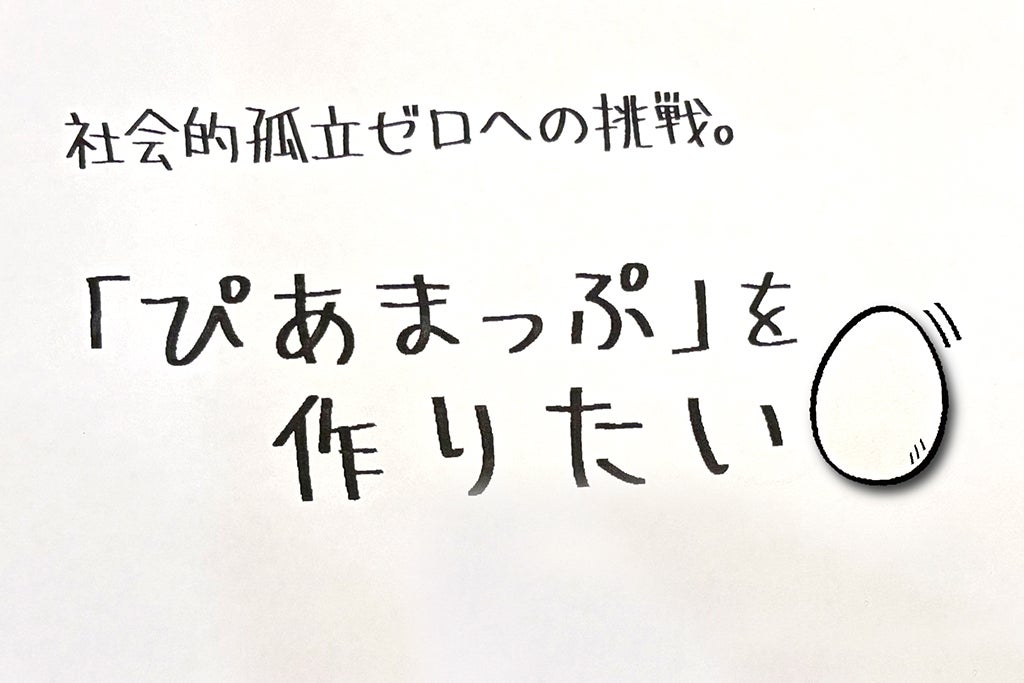 社会的孤立ゼロへの挑戦。
「ぴあまっぷ」を
作りたい